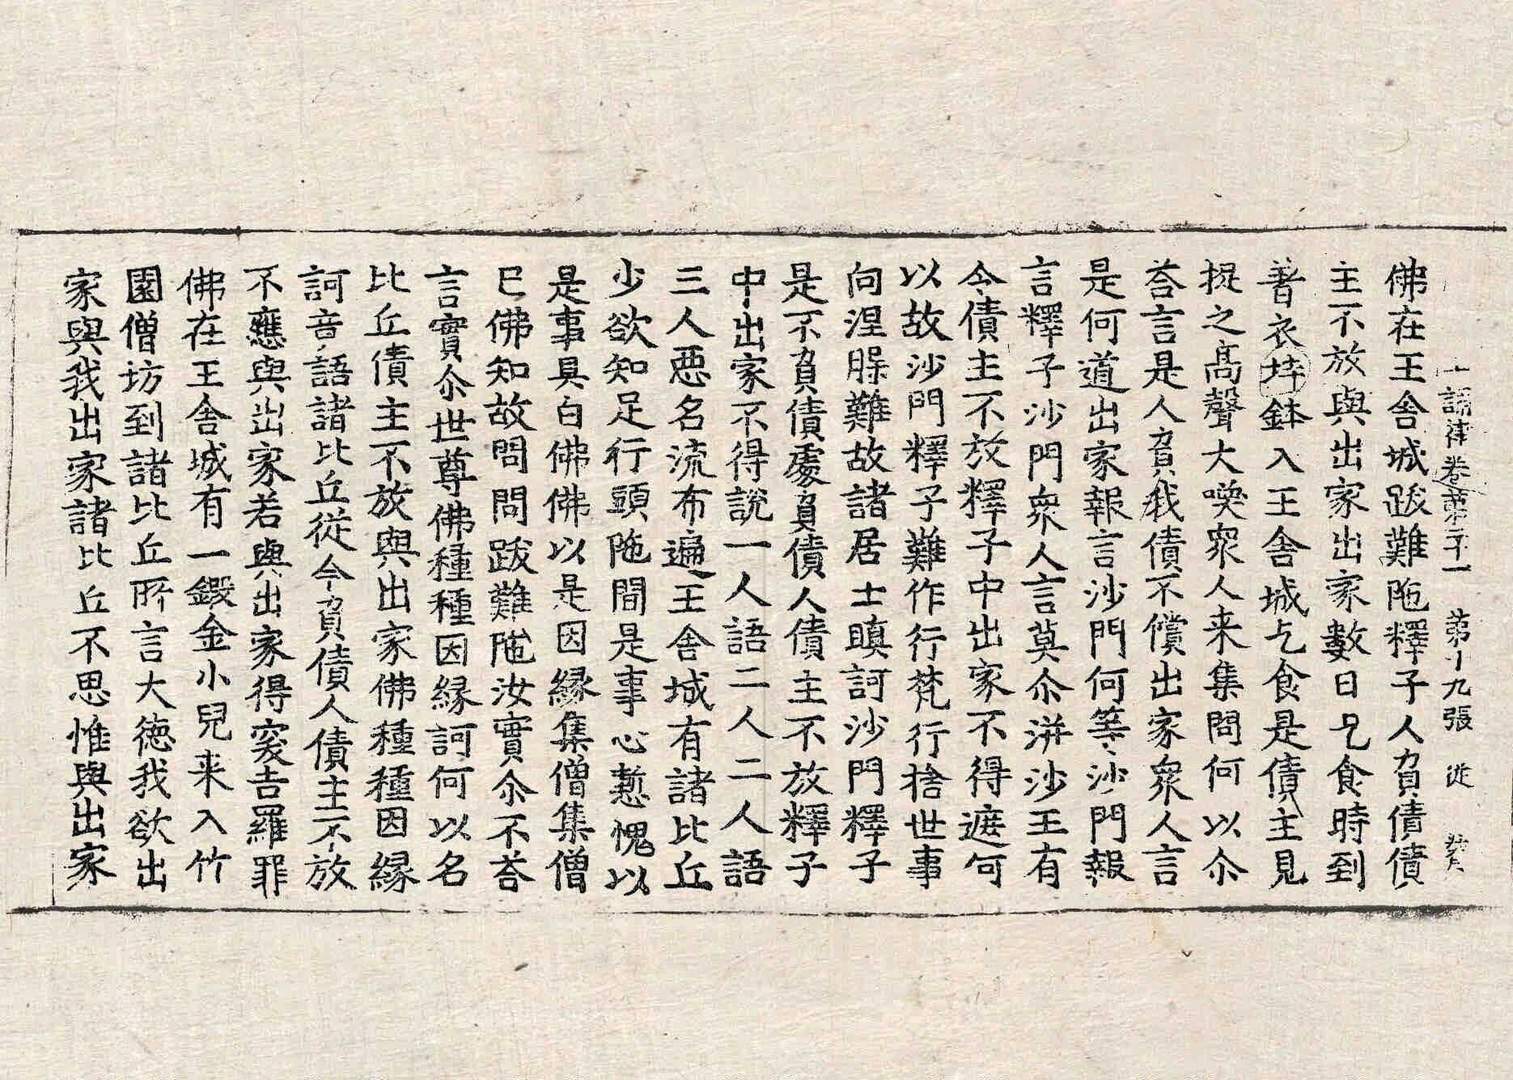 十誦律卷第二十一 第十九張 從
佛在王舍城跋難陁釋子人負債債
主不放與出家出家數日乞食時到
著衣持鉢入王舍城乞食是債主見
捉之高聲大喚衆人来集問何以尒
荅言是人負我債不償出家衆人言
是何道出家報言沙門何等沙門報
言釋子沙門衆人言莫尒洴沙王有
令債主不放釋子中出家不得遮何
以故沙門釋子難作行梵行捨世事
向涅縣難故諸居士瞋訶沙門釋子
是不負債處負債人債主不放釋子
中出家不得說一人語二人二人語
三人惡名流布遍王舍城有諸比丘
少欲知足行頭陁聞是事心慙愧以
是事具白佛佛以是因緣集僧集僧
已佛知故問問跋難陁汝實尒不荅
言實尒世尊佛種種因緣訶何以名
比丘債主不放與出家佛種種因緣
訶音語諸比丘從今負債人債主不放
不應與出家若與出家得突吉羅罪
佛在王舍城有一鍛金小兒来入竹
園僧坊到諸比丘所言大德我欲出
家與我出家諸比丘不思惟與出家